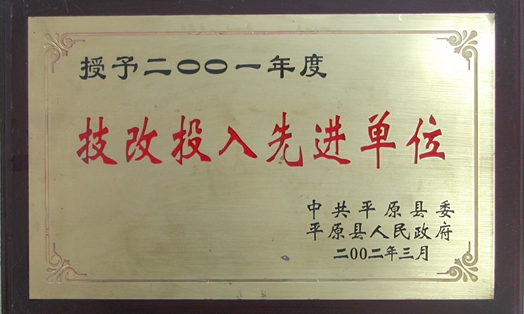 授予二〇〇一年度
技改投入先进单位
中共平原县委
平原县人民政府
二〇〇二年三月